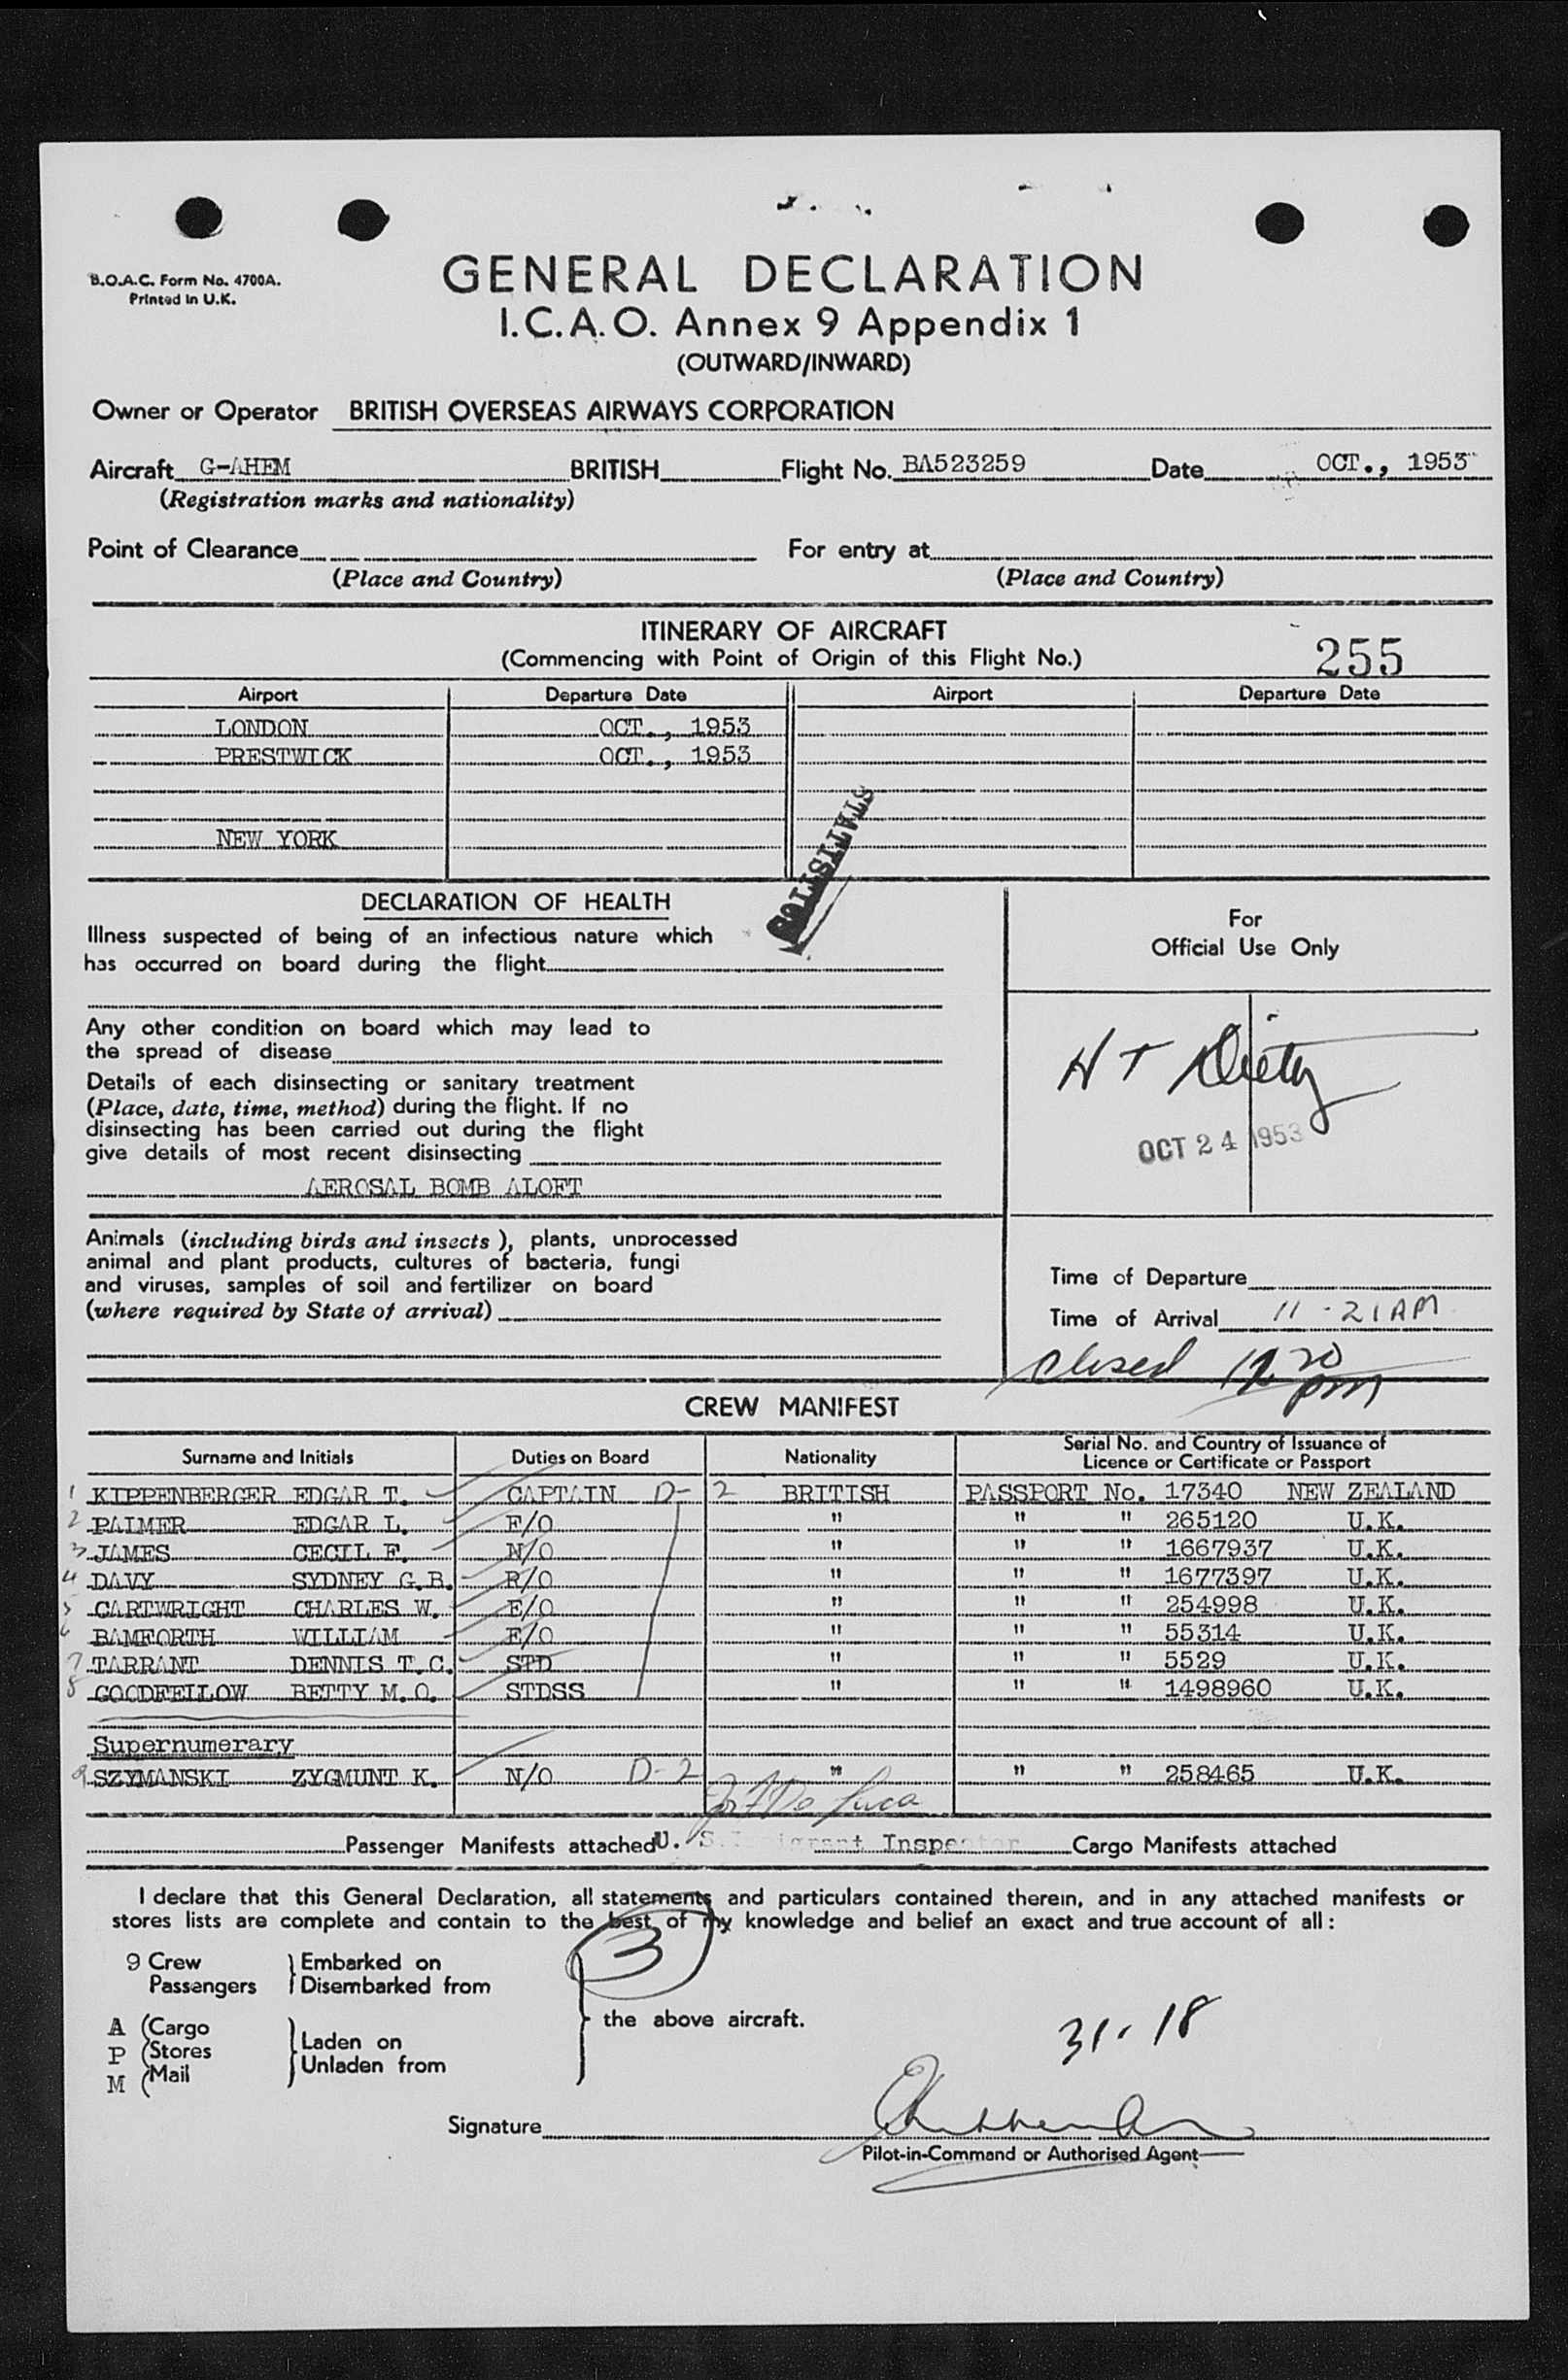 B.O.A.C. Form No. 4700A.
Printed in U.K.
GENERAL DECLARATION
I.C.A.O. Annex 9 Appendix 1
(OUTWARD/INWARD)
Owner or Operator BRITISH OVERSEAS AIRWAYS CORPORATION
Aircraft G-AHEM BRITISH Flight No. BA523259 Date OCT., 1953
(Registration marks and nationality)
Point of Clearance For entry at
(Place and Country) (Place and Country)
ITINERARY OF AIRCRAFT
(Commencing with Point of Origin of this Flight No.) 255
Airport Departure Date Airport Departure Date
LONDON OCT., 1953
PRESTWICK OCT., 1953
NEW YORK
STATISTICS
DECLARATION OF HEALTH
Illness suspected of being of an infectious nature which
has occurred on board during the flight
Any other condition on board which may lead to
the spread of disease
Details of each disinsecting or sanitary treatment
(Place, date, time, method) during the flight. If no
disinsecting has been carried out during the flight
give details of most recent disinsecting
AEROSAL BOMB ALOFT
Animals (including birds and insects), plants, unprocessed
animal and plant products, cultures of bacteria, fungi
and viruses, samples of soil and fertilizer on board
(where required by State of arrival)
For
Official Use Only
OCT 24 1953
Time of Departure
Time of Arrival 11-21AM
closed 12 20 pm
CREW MANIFEST
Surname and Initials Duties on Board Nationality Serial No. and Country of Issuance of
Licence or Certificate or Passport
1 KIPPENBERGER EDGAR T. CAPTAIN D-2 BRITISH PASSPORT No. 17340 NEW ZEALAND
2 PALMER EDGAR L. F/O " " " 265120 U.K.
3 JAMES CECIL F. N/O " " " 1667937 U.K.
4 DAVY SYDNEY G.B. R/O " " " 1677397 U.K.
5 CARTWRIGHT CHARLES W. E/O " " " 254998 U.K.
6 BAMFORTH WILLIAM E/O " " " 55314 U.K.
7 TARRANT DENNIS T.C. STD " " " 5529 U.K.
8 GOODFELLOW BETTY M.O. STDSS " " " 1498960 U.K.
Supernumerary
9 SZYMANSKI ZYGMUNT K. N/O D-2 " " " 258465 U.K.
De Luca
Passenger Manifests attached U. S. Immigrant Inspector Cargo Manifests attached
I declare that this General Declaration, all statements and particulars contained therein, and in any attached manifests or
stores lists are complete and contain to the best of my knowledge and belief an exact and true account of all:
3
9 Crew Embarked on
Passengers Disembarked from
the above aircraft.
A (Cargo
P (Stores Laden on
M (Mail Unladen from
31-18
Signature
Pilot-in-Command or Authorised Agent